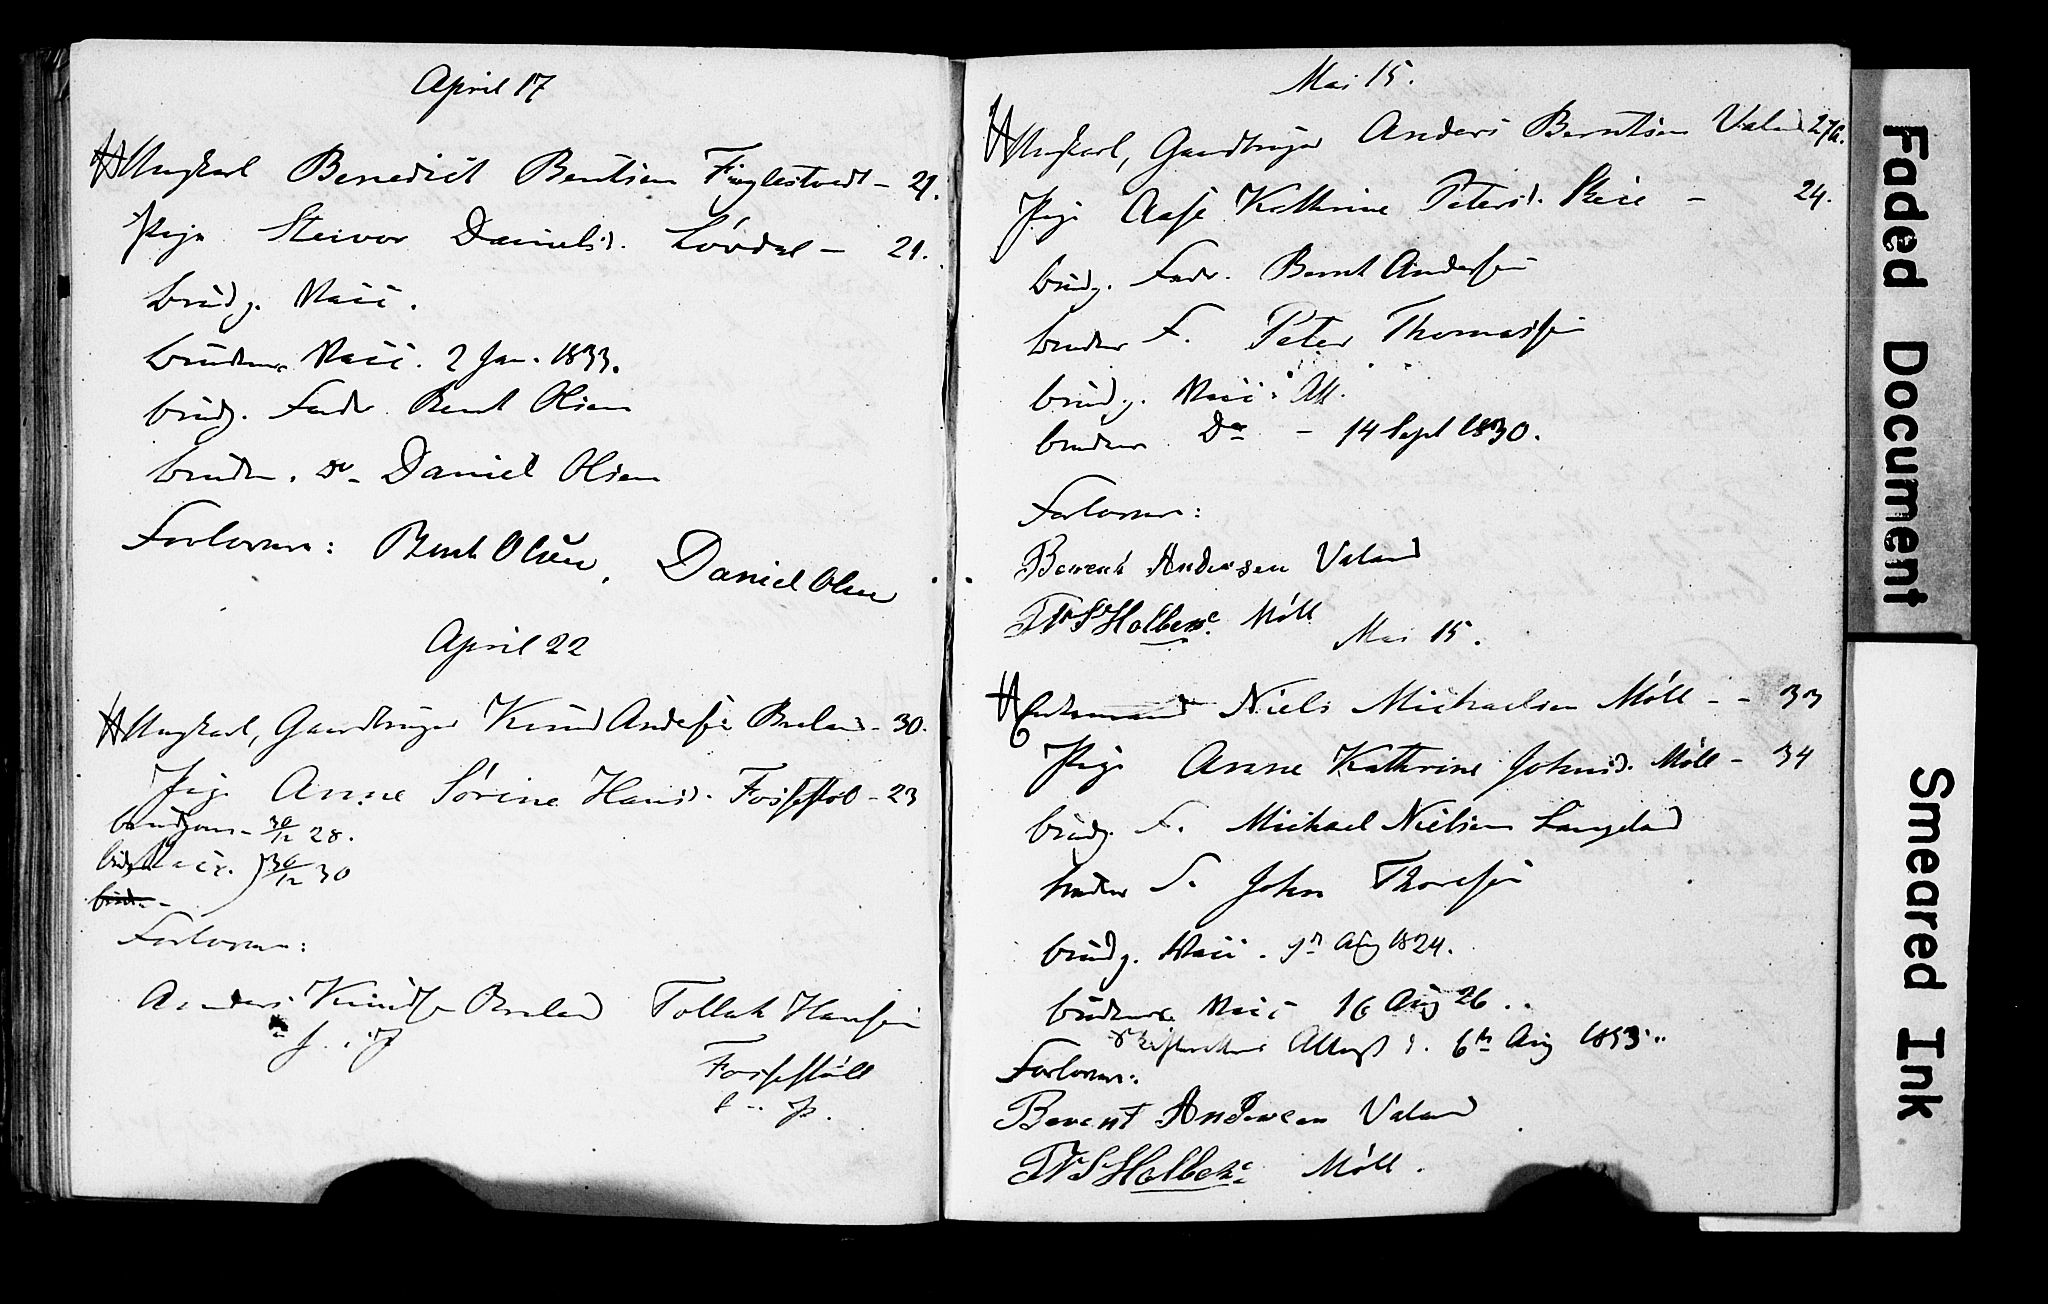 April 17
Ungkarl Benedict Bentsen Fuglestvedt - 29.
Pige Steivor Daniels. Lövdal - 21.
brudg. Vacc.
brudens Vacc. 2 Jan. 1833.
brudg. Fader Bent Olsen
bruden. do - Daniel Olsen
Forlovere: Bent Olsen, Daniel Olsen
April 22
Ungkarl, Gaardbruger Knud Anderse Breland - 30.
Pige Anne Sörine Hansd. Fosseståöl - 23
brudgom - 30/12 28.
Vacc. 30/12 30
Forlovere:
Anders Knudse Breland Tollak Hansen
Fossestöll
Mai 15.
Ungkarl, Gaardbruger Anders Berntsen Valand 27 a.
Pige Aase Kathrine Petersd. - 24.
brudg. Fader. Bernt Andersen
bruden F. Peter Thomassen
brudg. Vacc. Att.
brudens Do - 14 Sept 1830.
Forlovere:
Berent Andersen Valand
Holbek Möll
Mai 15.
Enkemand Niels Michaelsen Möll - - 33
Pige Anne Kathrine Johnsd. Möll - 34
brudg. F. Michael Nielsen Langeland
bruden F. John Thoresen
brudg. Vacc. Aug 1824.
brudens Vacc 16 Aug 26.
Skifterettens Attest d. 6te Aug 1853.
Forlovere:
Berent Andersen Valand
Holbek Möll.
Faded Document
Smeared Ink